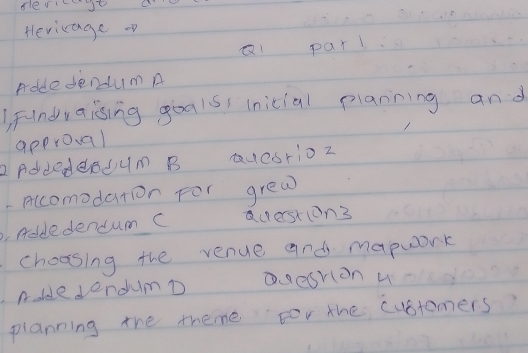 Hevicage →
Q1 part 1
Addedendum A
1, Fundraising goals, initial planning and
approval
2 Addedendum B Question 2
- Accomodation for grew
3, Addedendum C Question 3
- Choosing the venue and mapwork
- Addedendum D Question 4
planning the theme for the customers